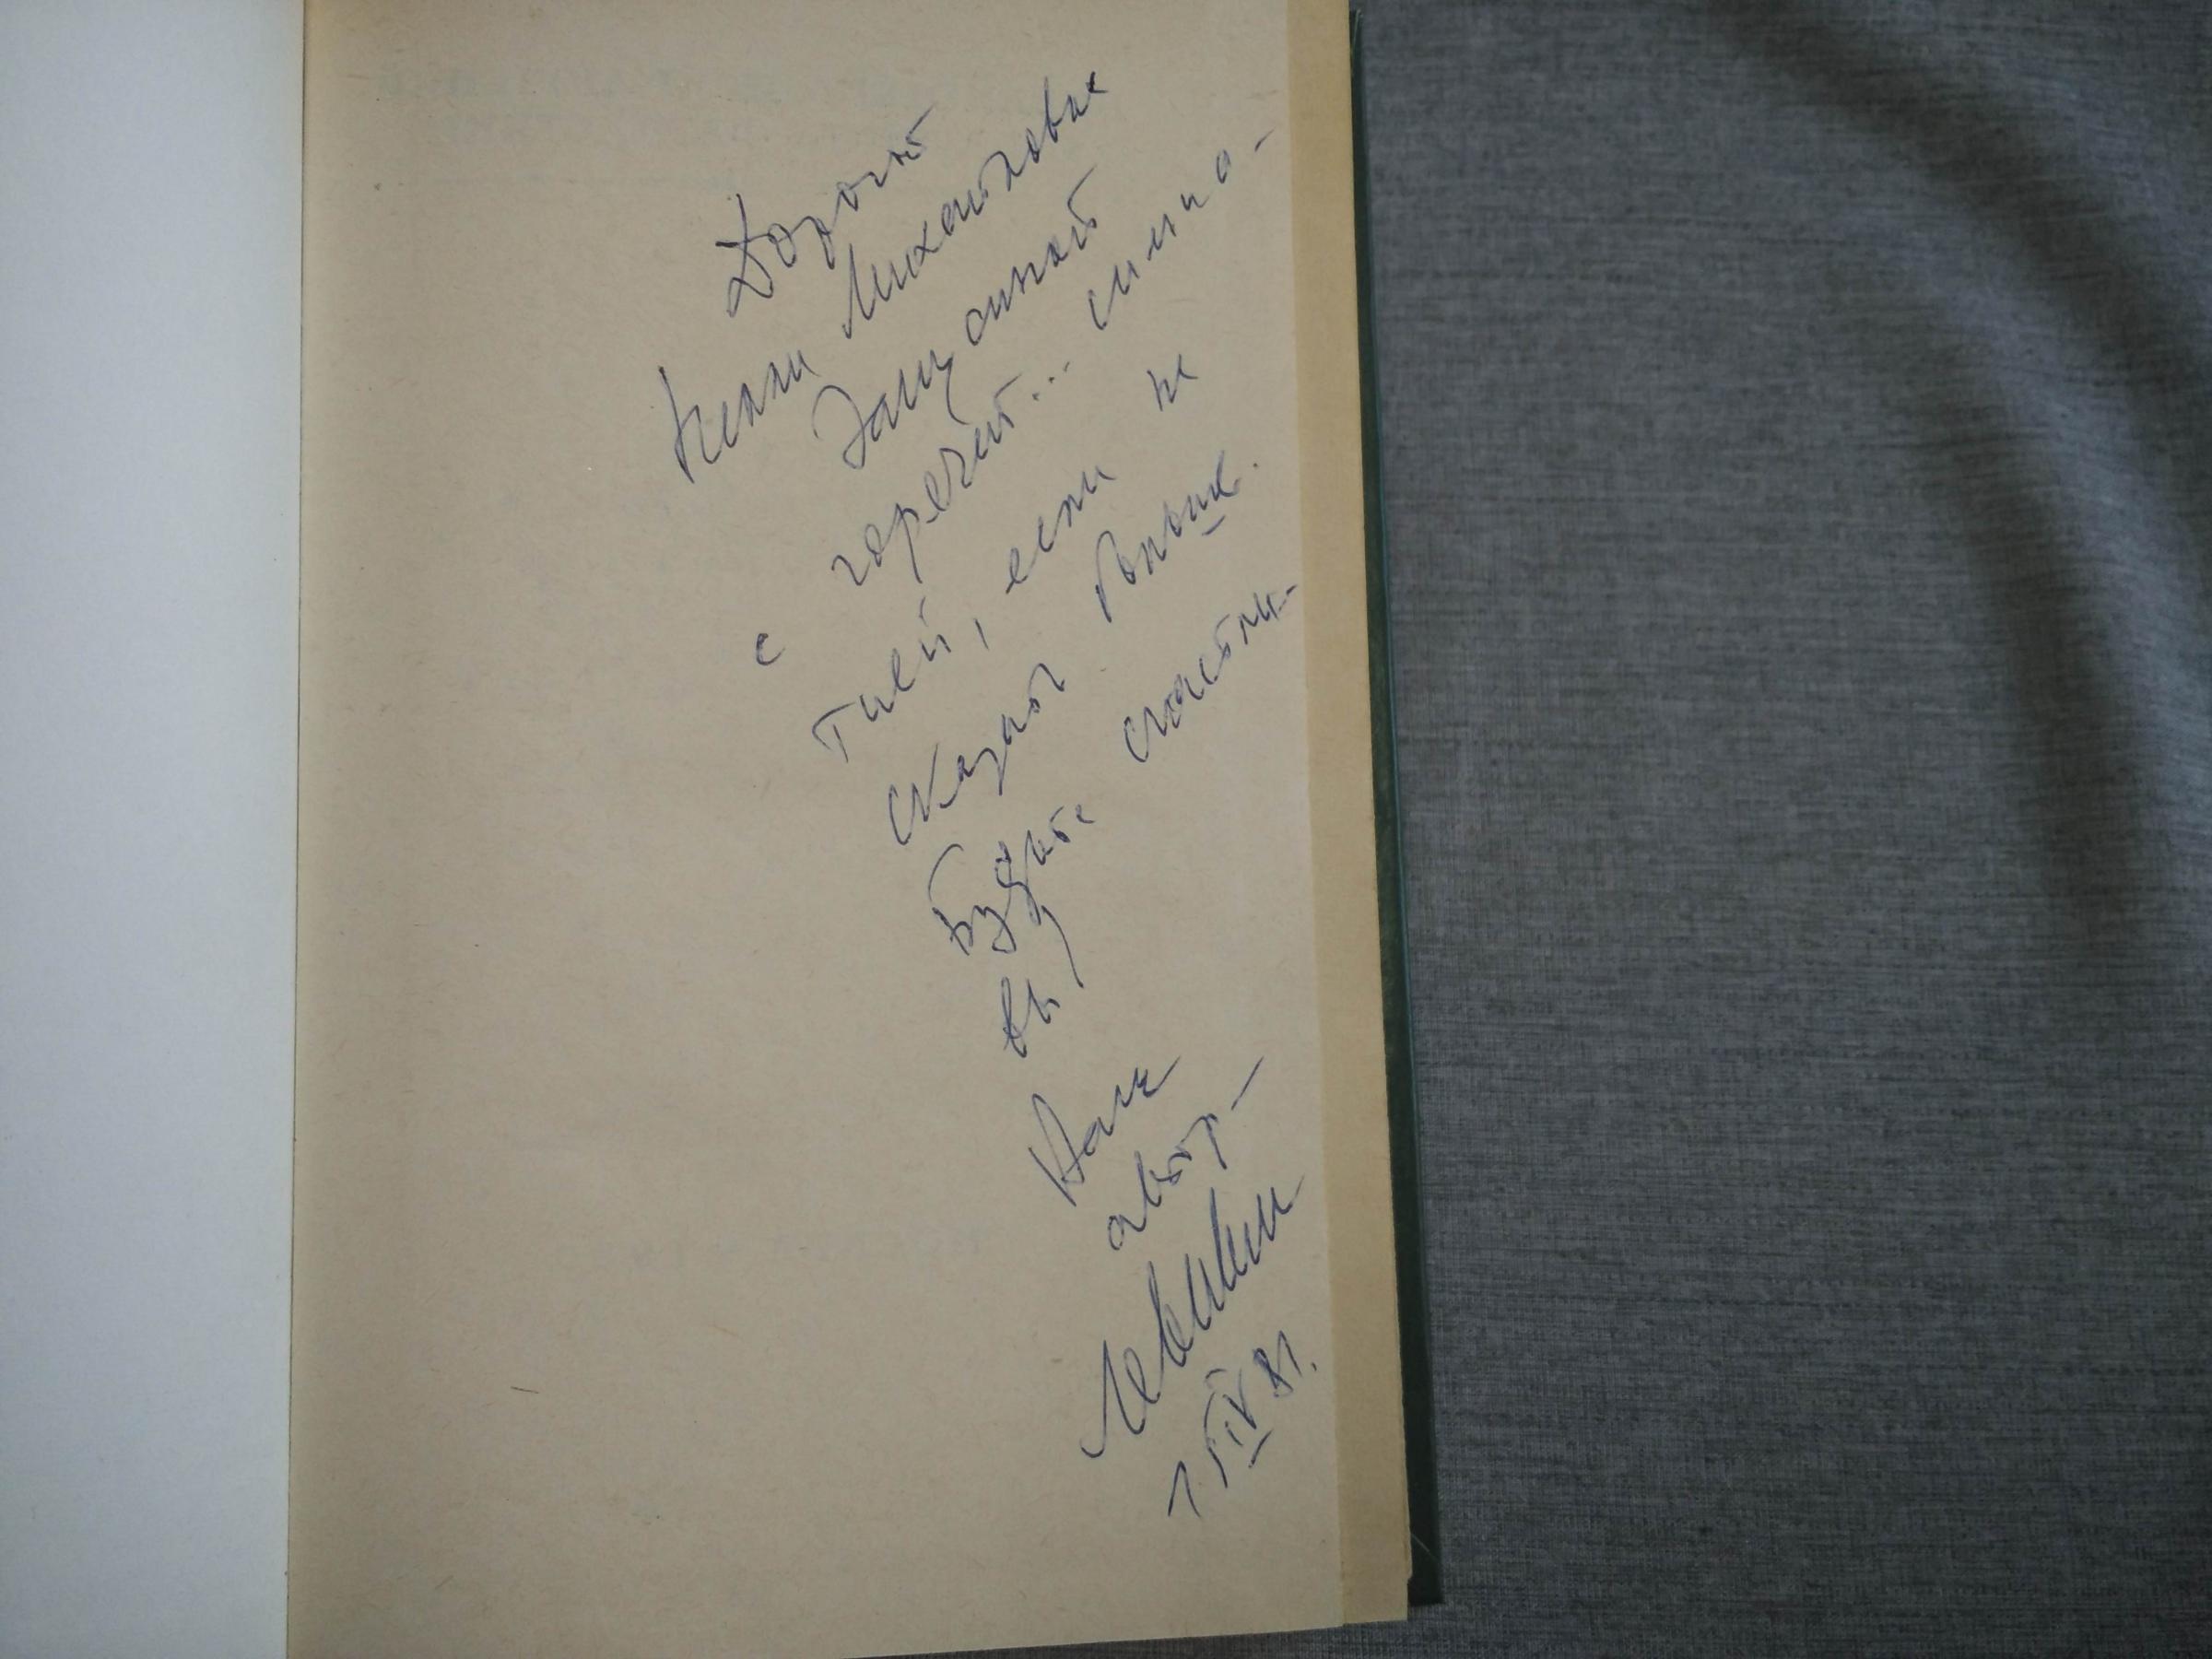 Дорогой
Нелли Михайловне
Защипиной
с горячей... симпа-
тией, если не
сказать больше.
Будьте счастли-
вы,
Ваш
автор —
1 IV 81.